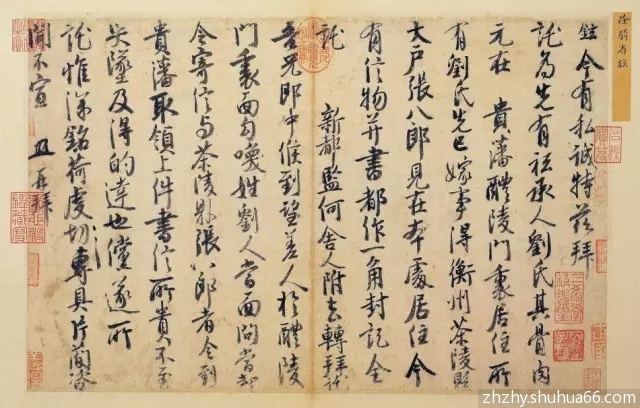 徐騎省鉉
鉉今有私誠特茲拜
託為先有祗承人劉氏其骨肉
元在 貴藩醴陵門裏居住所
有劉氏先已嫁事得衡州茶陵縣
大戶張八郎見在本處居住今
有信物并書都作一角封記全
託 新都監何舍人附去轉拜託
吾兄郎中候到望差人於醴陵
門裏面勾喚姓劉人當面問當却
令寄信与茶陵縣張八郎者令到
貴藩取領上件書信所貴不至
失墜及得的達也儻遂所
託惟深銘荷虔切專具片簡咨
聞不宣 再拜
zhzhy.shuhua66.com